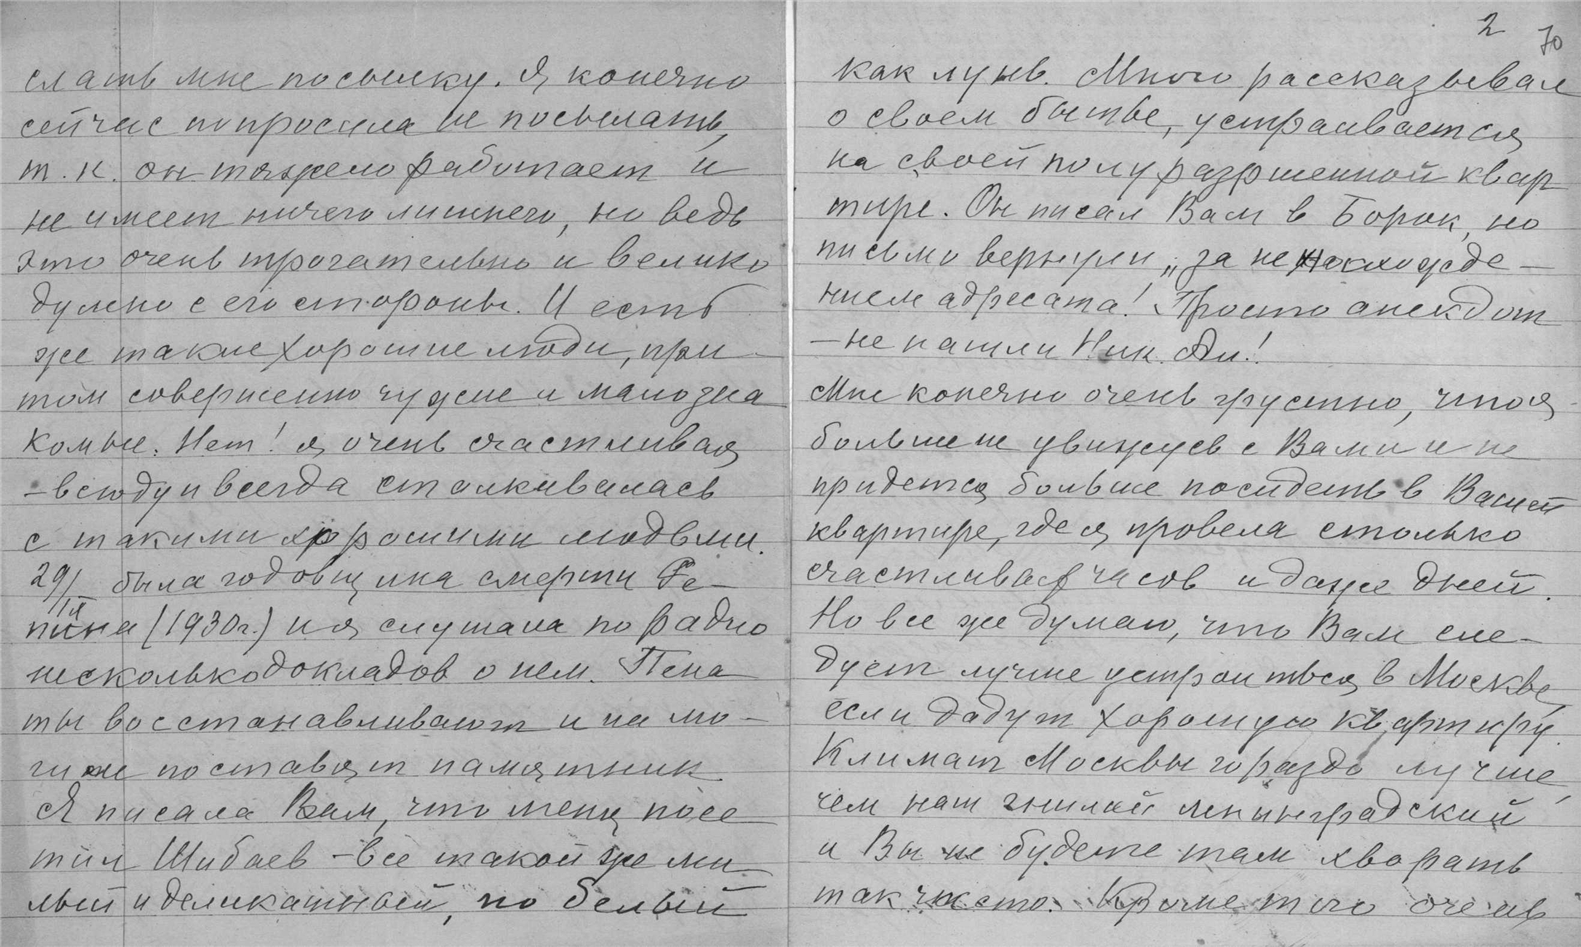 слать мне посылку. Я конечно
сейчас попросила не посылать,
т. к. он тяжело работает и
не имеет ничего лишнего, но ведь
это очень трогательно и велико
душно с его стороны. И есть
же такие хорошие люди, при
том совершенно чужие и малозна
комые. Нет! я очень счастливая
– всюду и всегда сталкивалась
с такими хорошими людьми.
29/IX была годовщина смерти Ре-
пина (1930г.) и я слушала по радио
несколько докладов о нем. Пена
ты восстанавливают и на мо-
гиле поставят памятник.
Я писала Вам, что меня посе-
тил Шибаев – все такой же ми-
лый и деликатный, но белый
2 70
как лунь. Много рассказывал
о своем бытье, устраивается
на своей полуразршенной квар
тире. Он писал Вам в Борок, но
письмо вернули „за не нахожде-
нием адресата! Просто анекдот
– не нашли Ник. Ал.!
Мне конечно очень грустно, что я
больше не увижусь с Вами и не
придется больше посидеть в Вашей
квартире, где я провела столько
счастливых часов и даже дней.
Но все же думаю, что Вам сле-
дует лучше устроиться в Москве,
если дадут хорошую квартиру.
Климат Москвы гораздо лучше,
чем наш гнилой ленинградский
и Вы не будете там хворать
так часто. Кроме того очень